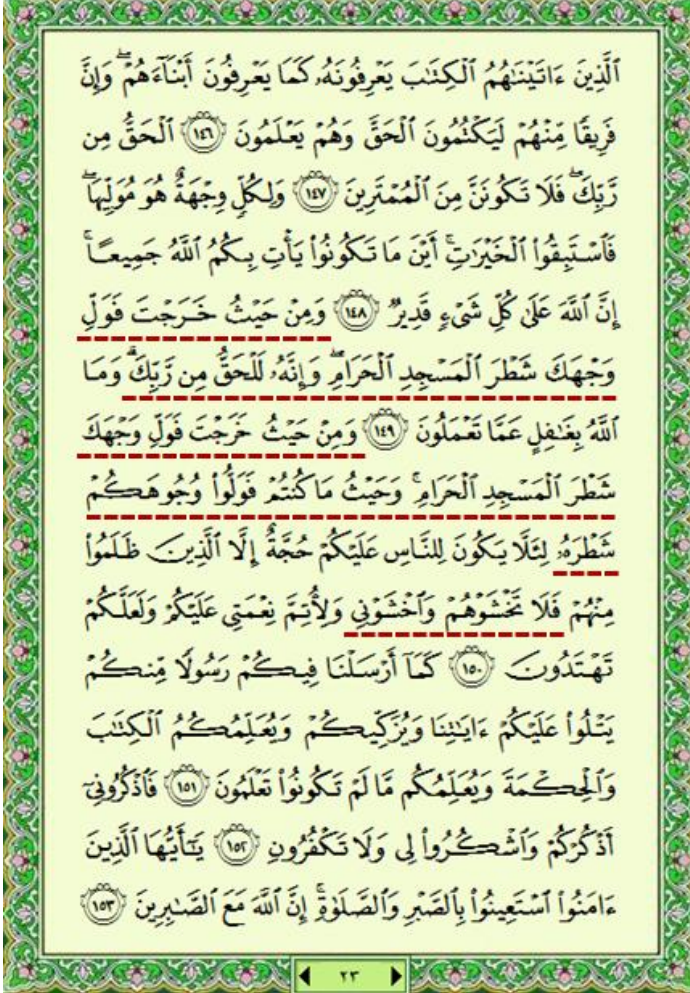 ٱلَّذِينَ ءَاتَيْنَٰهُمُ ٱلْكِتَٰبَ يَعْرِفُونَهُۥ كَمَا يَعْرِفُونَ أَبْنَآءَهُمْ ۖ وَإِنَّ
فَرِيقًا مِّنْهُمْ لَيَكْتُمُونَ ٱلْحَقَّ وَهُمْ يَعْلَمُونَ ١٤٦ ٱلْحَقُّ مِن
رَّبِّكَ ۖ فَلَا تَكُونَنَّ مِنَ ٱلْمُمْتَرِينَ ١٤٧ وَلِكُلٍّ وِجْهَةٌ هُوَ مُوَلِّيهَا ۖ
فَٱسْتَبِقُوا۟ ٱلْخَيْرَٰتِ ۚ أَيْنَ مَا تَكُونُوا۟ يَأْتِ بِكُمُ ٱللَّهُ جَمِيعًا ۚ
إِنَّ ٱللَّهَ عَلَىٰ كُلِّ شَىْءٍ قَدِيرٌ ١٤٨ وَمِنْ حَيْثُ خَرَجْتَ فَوَلِّ
وَجْهَكَ شَطْرَ ٱلْمَسْجِدِ ٱلْحَرَامِ ۖ وَإِنَّهُۥ لَلْحَقُّ مِن رَّبِّكَ ۗ وَمَا
ٱللَّهُ بِغَٰفِلٍ عَمَّا تَعْمَلُونَ ١٤٩ وَمِنْ حَيْثُ خَرَجْتَ فَوَلِّ وَجْهَكَ
شَطْرَ ٱلْمَسْجِدِ ٱلْحَرَامِ ۚ وَحَيْثُ مَا كُنتُمْ فَوَلُّوا۟ وُجُوهَكُمْ
شَطْرَهُۥ لِئَلَّا يَكُونَ لِلنَّاسِ عَلَيْكُمْ حُجَّةٌ إِلَّا ٱلَّذِينَ ظَلَمُوا۟
مِنْهُمْ فَلَا تَخْشَوْهُمْ وَٱخْشَوْنِى وَلِأُتِمَّ نِعْمَتِى عَلَيْكُمْ وَلَعَلَّكُمْ
تَهْتَدُونَ ١٥٠ كَمَآ أَرْسَلْنَا فِيكُمْ رَسُولًا مِّنكُمْ
يَتْلُوا۟ عَلَيْكُمْ ءَايَٰتِنَا وَيُزَكِّيكُمْ وَيُعَلِّمُكُمُ ٱلْكِتَٰبَ
وَٱلْحِكْمَةَ وَيُعَلِّمُكُم مَّا لَمْ تَكُونُوا۟ تَعْلَمُونَ ١٥١ فَٱذْكُرُونِىٓ
أَذْكُرْكُمْ وَٱشْكُرُوا۟ لِى وَلَا تَكْفُرُونِ ١٥٢ يَٰٓأَيُّهَا ٱلَّذِينَ
ءَامَنُوا۟ ٱسْتَعِينُوا۟ بِٱلصَّبْرِ وَٱلصَّلَوٰةِ ۚ إِنَّ ٱللَّهَ مَعَ ٱلصَّٰبِرِينَ ١٥٣
٢٣